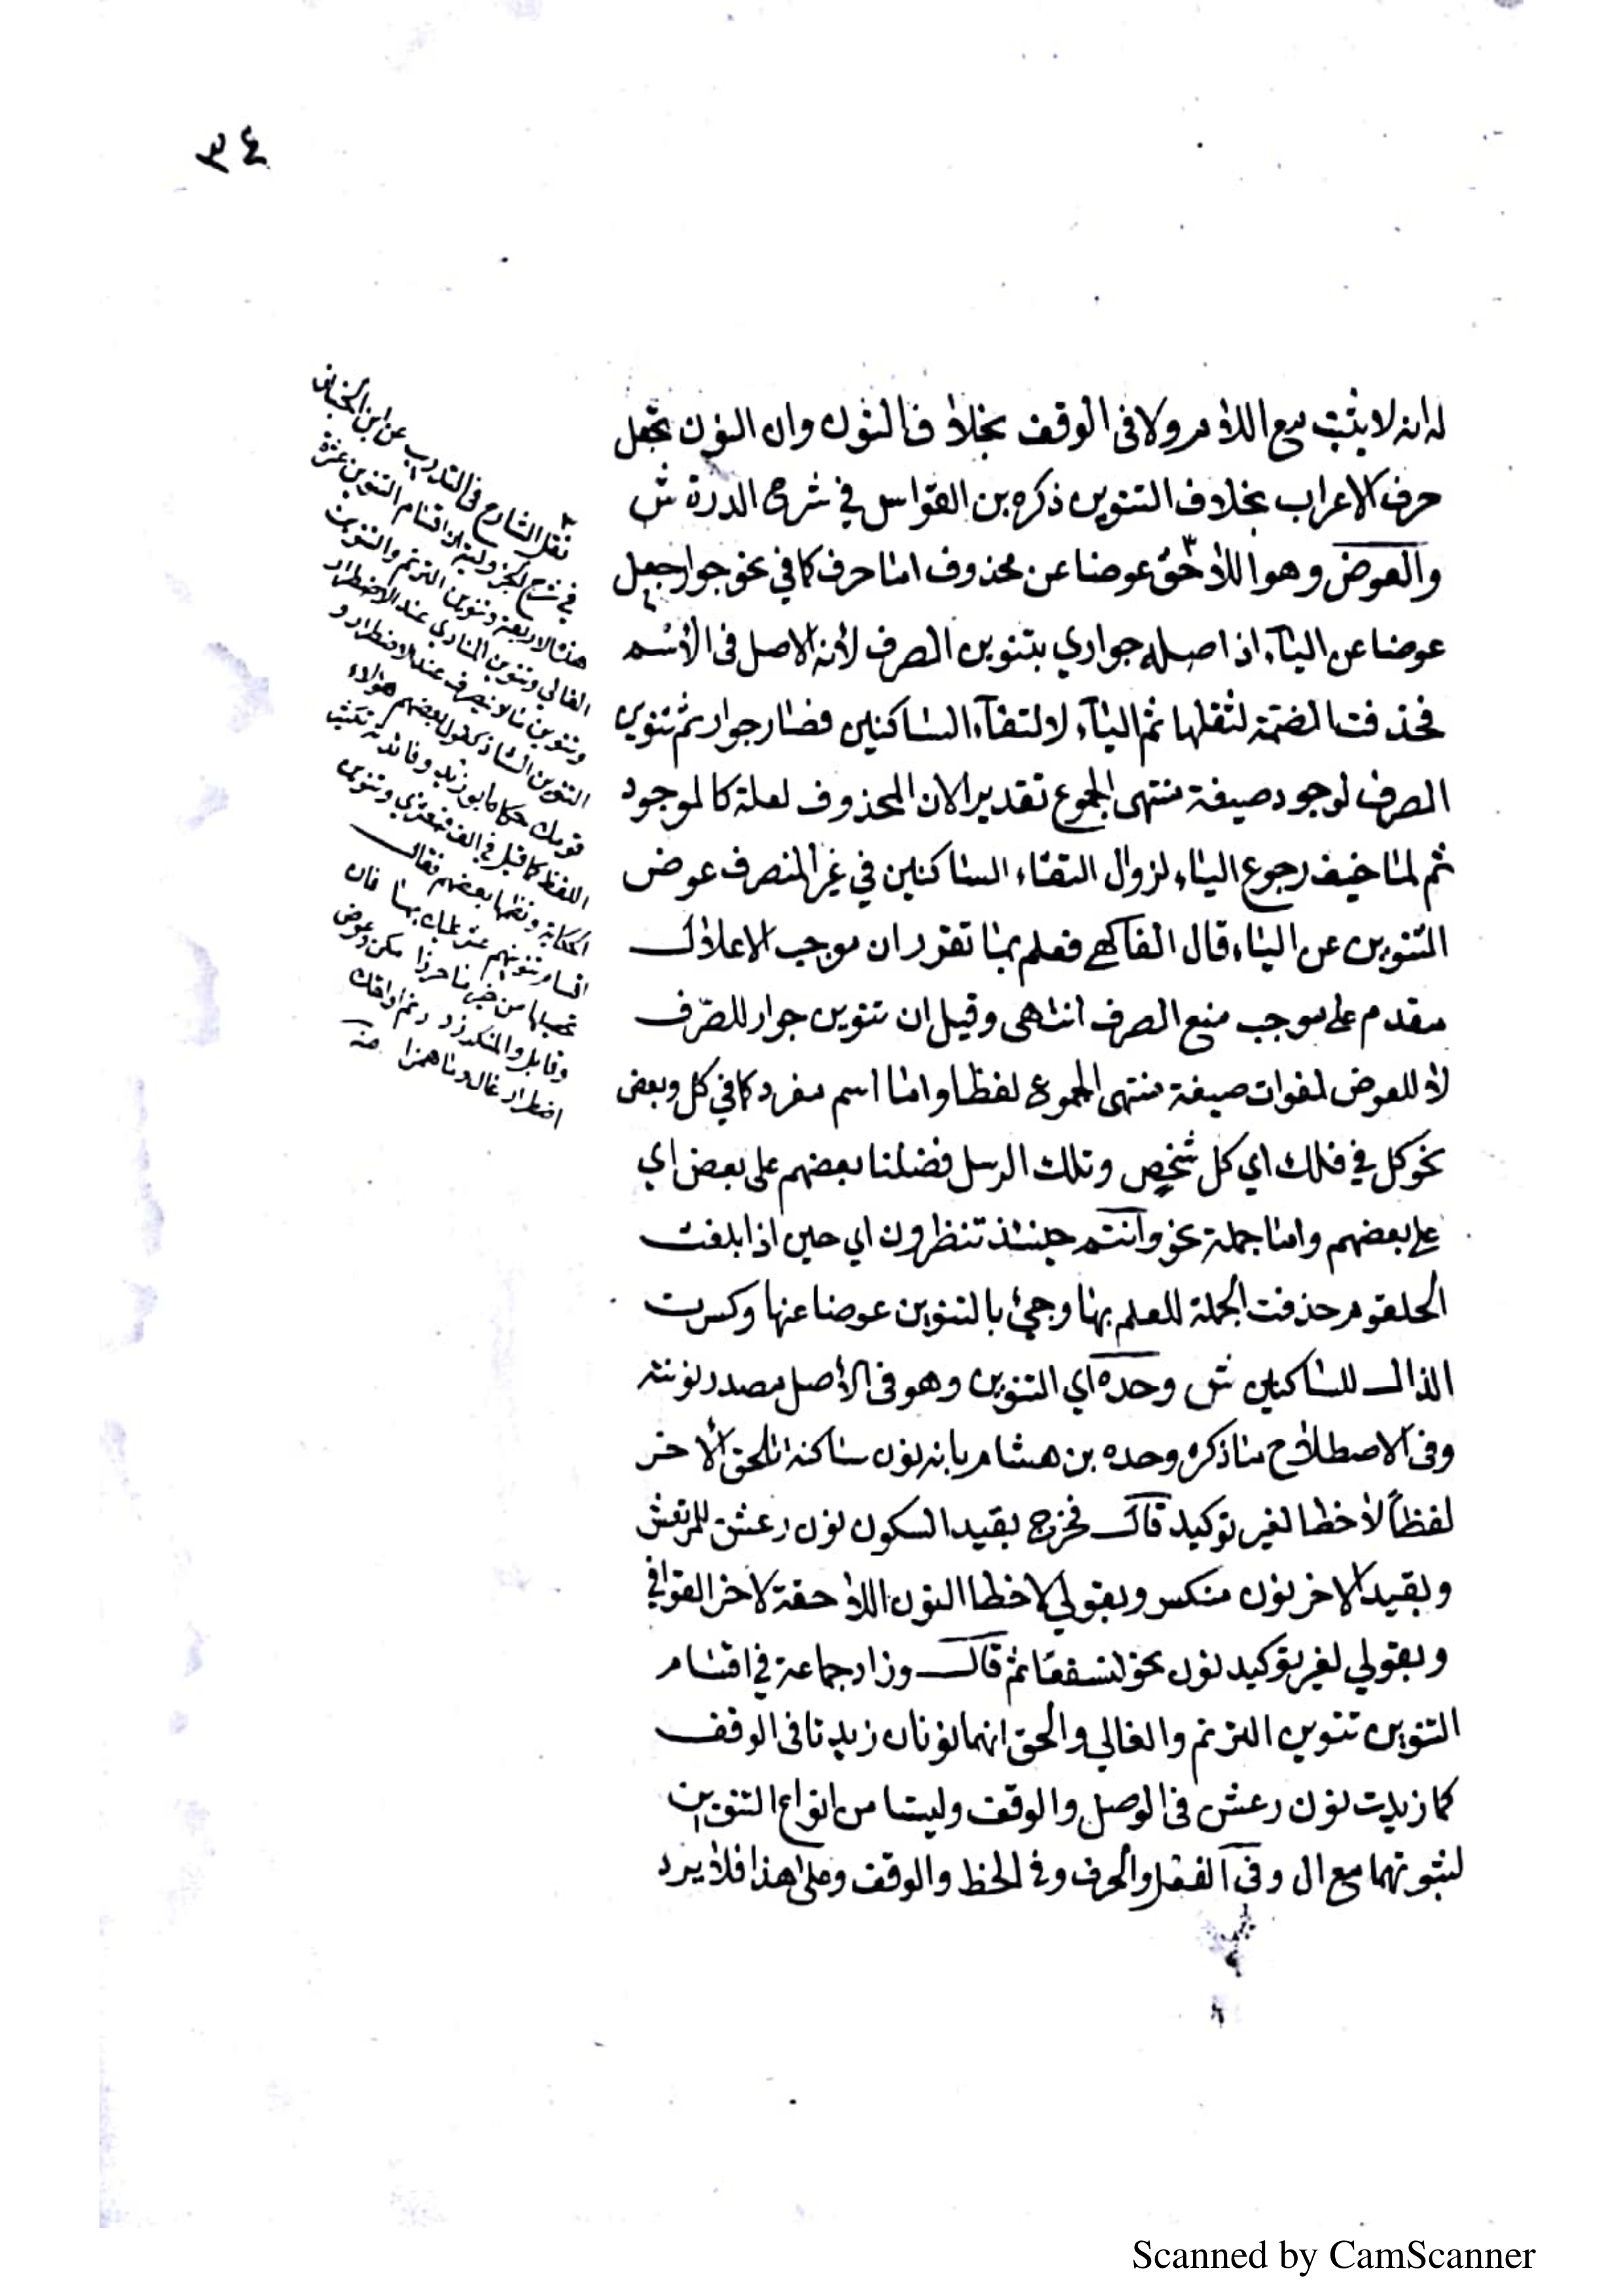 ٣٤
له انه لا يثبت مع اللام ولا فى الوقف بخلاف النون وان النون تجعل
حرف الاعراب بخلاف التنوين ذكره بن القواس في شرح الدرة ش
والعوض وهو اللاحق عوضا عن محذوف اما حرف كما في نحو جوار جعل
عوضا عن الياء اذ اصله جواري بتنوين الصرف لأنه الاصل فى الأسم
فحذفت الضمة لثقلها ثم الياء لالتقاء الساكنين فصار جوار ثم تنوين
الصرف لوجود صيغة منتهى الجموع تقديرا لان المحذوف لعلة كالموجود
ثم لما خيف رجوع الياء لزوال التقاء الساكنين في غير المنصرف عوض
التنوين عن الياء قال الفاكهي فعلم بما تقرر ان موجب الاعلال
مقدم على موجب منع الصرف انتهى وقيل ان تنوين جوار للصرف
لا للعوض لفوات صيغة منتهى الجموع لفظا واما اسم مفرد كما في كل وبعض
نحو كل في فلك اي كل شخص وتلك الرسل فضلنا بعضهم على بعض اي
على بعضهم واما جملة نحو وأنتم حينئذ تنظرون اي حين اذا بلغت
الحلقوم حذفت الجملة للعلم بها وجئ بالتنوين عوضا عنها وكسرت
الذال للساكنين ش وحده اي التنوين وهو فى الأصل مصدر نونته
وفى الاصطلاح ما ذكره وحده بن هشام بانه نون ساكنة تلحق الأخر
لفظاً لا خطا لغير توكيد قال فخرج بقيد السكون نون رعشن للمرتعش
وبقيد الاخر نون منكسر وبقولي لا خطا النون اللاحقة لاخر القوافي
وبقولي لغير توكيد نون نحو لنسفعًا ثم قال وزاد جماعة في اقسام
التنوين تنوين الترنم والغالي والحق انهما نونان زيدتا فى الوقف
كما زيدت نون رعشن فى الوصل والوقف وليستا من انواع التنوين
لثبوتهما مع ال وفى الفعل والحرف وفى الخط والوقف وعلى هذا فلا يرد
نقل الشارح في التدريب عن ابن الخباز
في شرح الجزولية ان اقسام التنوين عشرة
هذه الاربعة وتنوين الترنم والتنوين
الغالي وتنوين المنادى عند الاضطرار
وتنوين ما لا ينصرف عند الاضطرار و
التنوين الشاذ كقول بعضهم هؤلاء
قومك حكاه ابو زيد وفائدته تكثير
اللفظ كما قيل في الف قبعثرى وتنوين
الحكاية ونظمها بعضهم فقال
اقسام تنوينهم عشر عليك بها فان
تحصيلها من خير ما حرزا مكن وعوض
وقابل والمنكر زد رنم او احك
اضطرار غال وما همزا منه
Scanned by CamScanner